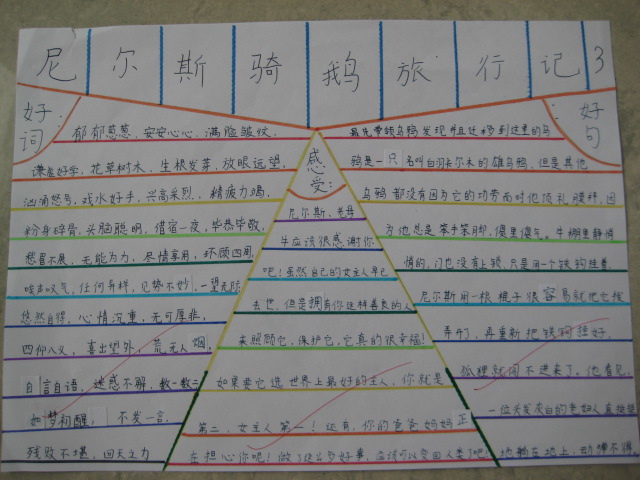 尼尔斯骑鹅旅行记3
好词:
郁郁葱葱、安安心心、满脸皱纹、
谦虚好学、花草树木、生根发芽、放眼远望、
汹涌怒号、戏水好手、兴高采烈、精疲力竭、
粉身碎骨、头脑聪明、借宿一夜、毕恭毕敬、
愁眉不展、无能为力、尽情享用、环顾四周、
唉声叹气、任何奇样、见势不妙、一望无际
悠然自得、心情沉重、无可厚非、
四仰八叉、喜出望外、荒无人烟、
自言自语、迷惑不解、数一数二
如梦初醒、不发一言、
残败不堪、回天之力
感受:
尼尔斯,老母
牛应该很感谢你
吧!虽然自己的女主人早已
去世,但是拥有你这样善良的人
来照顾它,保护它,它真的很幸福!
如果要它选世界上最好的主人,你就是
第二,女主人第一!还有,你的爸爸妈妈正
在担心你呢!做了这么多好事,应该可以变回人类了吧!
好句:
最先带领乌鸦发现并且迁移到这里的乌
鸦是一只名叫白羽卡尔木的雄乌鸦,但是其他
乌鸦都没有因为它的功劳而对他顶礼膜拜,因
为他总是笨手笨脚,傻里傻气。牛棚里静悄
悄的,门也没有上锁,只是用一个铁钩挂着,
尼尔斯用一根棍子很容易就把它拨
开了,再重新把铁钩挂好,
狐狸就闯不进来了,他看见,
一位头发灰白的老妇人直挺挺
地躺在地上,动弹不得。